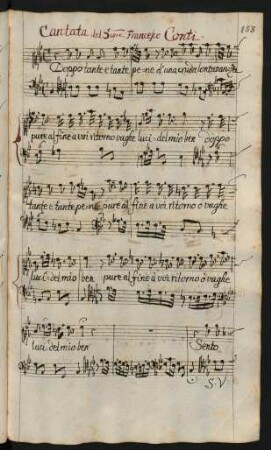 Cantata del Sigre Francesco Conti
188
Doppo tante e tante pe-ne d'una cruda lontananza
pure al fine a voi ritorno vaghe luci del mio ben Doppo
tante e tante pe-ne pure al fine à voi ritorno ò vaghe
luci del mio ben pure al fine à voi ritorno ò vaghe
luci del mio ben Sento
S. V